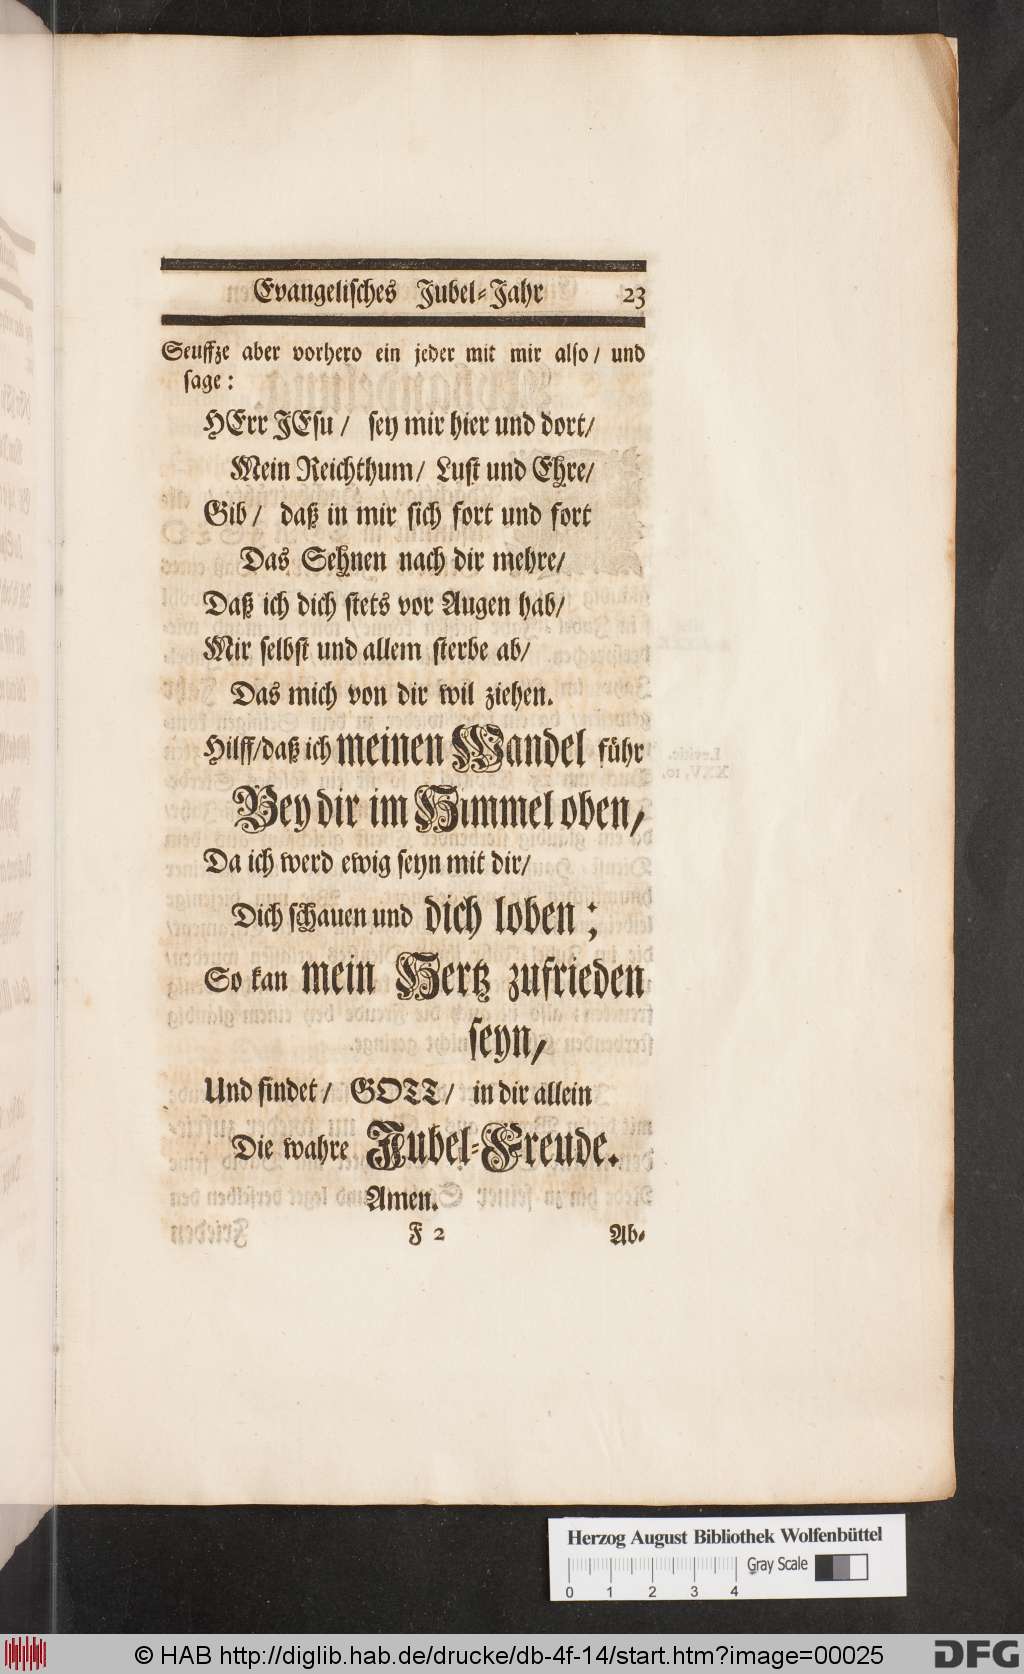 Evangelisches Jubel-Jahr 23
Seuffze aber vorhero ein jeder mit mir also/ und
sage:
HErr JEsu/ sey mir hier und dort/
Mein Reichthum/ Lust und Ehre/
Gib/ daß in mir sich fort und fort
Das Sehnen nach dir mehre/
Daß ich dich stets vor Augen hab/
Mir selbst und allem sterbe ab/
Das mich von dir wil ziehen.
Hilff/daß ich meinen Wandel führ
Bey dir im Himmel oben,
Da ich werd ewig seyn mit dir/
Dich schauen und dich loben;
So kan mein Hertz zufrieden
seyn,
Und findet/ GOTT/ in dir allein
Die wahre Jubel-Freude.
Amen.
F 2 Ab-
Herzog August Bibliothek Wolfenbüttel
Gray Scale
0 1 2 3 4
© HAB http://diglib.hab.de/drucke/db-4f-14/start.htm?image=00025
DFG